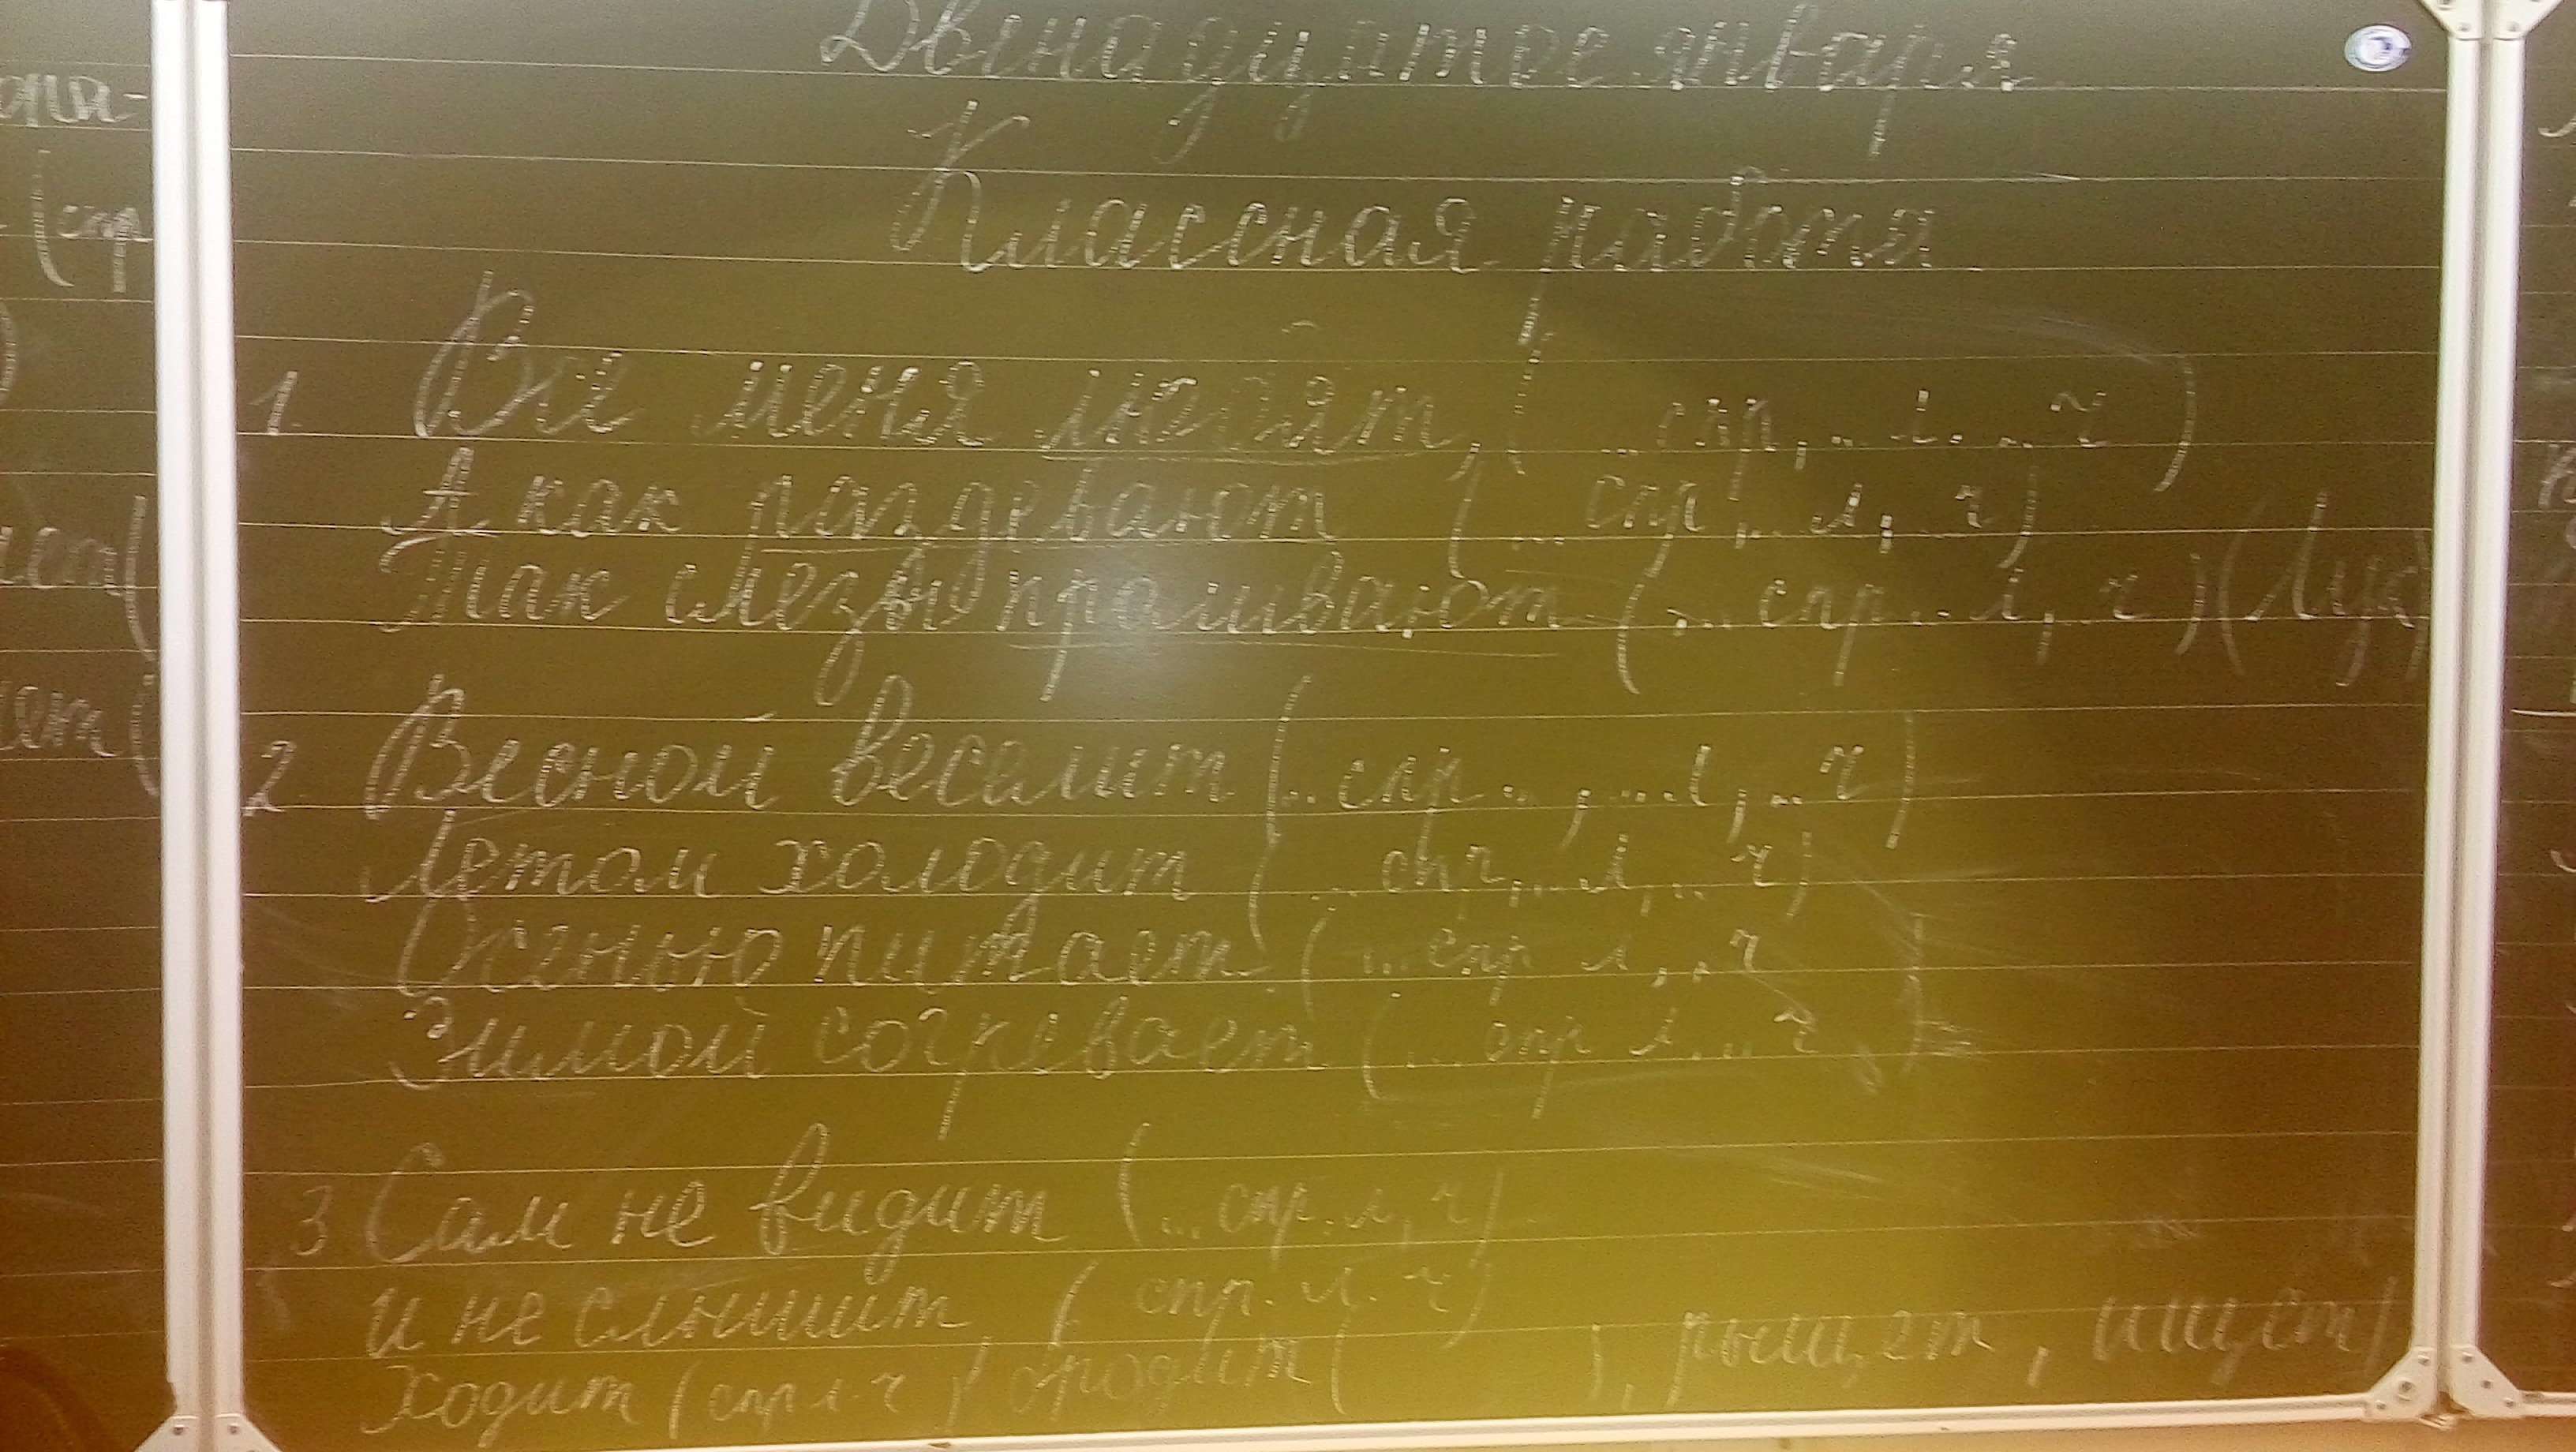 Двенадцатое января
Классная работа.
1. Все меня любят, (... спр, ... л. ... ч)
А как раздевают, (... спр, ... л, ... ч)
Так слезы проливают (... спр ... л, ч) (Лук)
2 Весной веселит (... спр ..., ... л, ... ч)
Летом холодит (... спр, ... л, ... ч)
Осенью питает (... спр л, ... ч
Зимой согревает (... спр л. ... ч.)
3 Сам не видит (... спр. л, ч)
и не слышит, ( спр. л. ч)
Ходит (спр л. ч ) бродит ( ), рыщет, ищет)
(спр